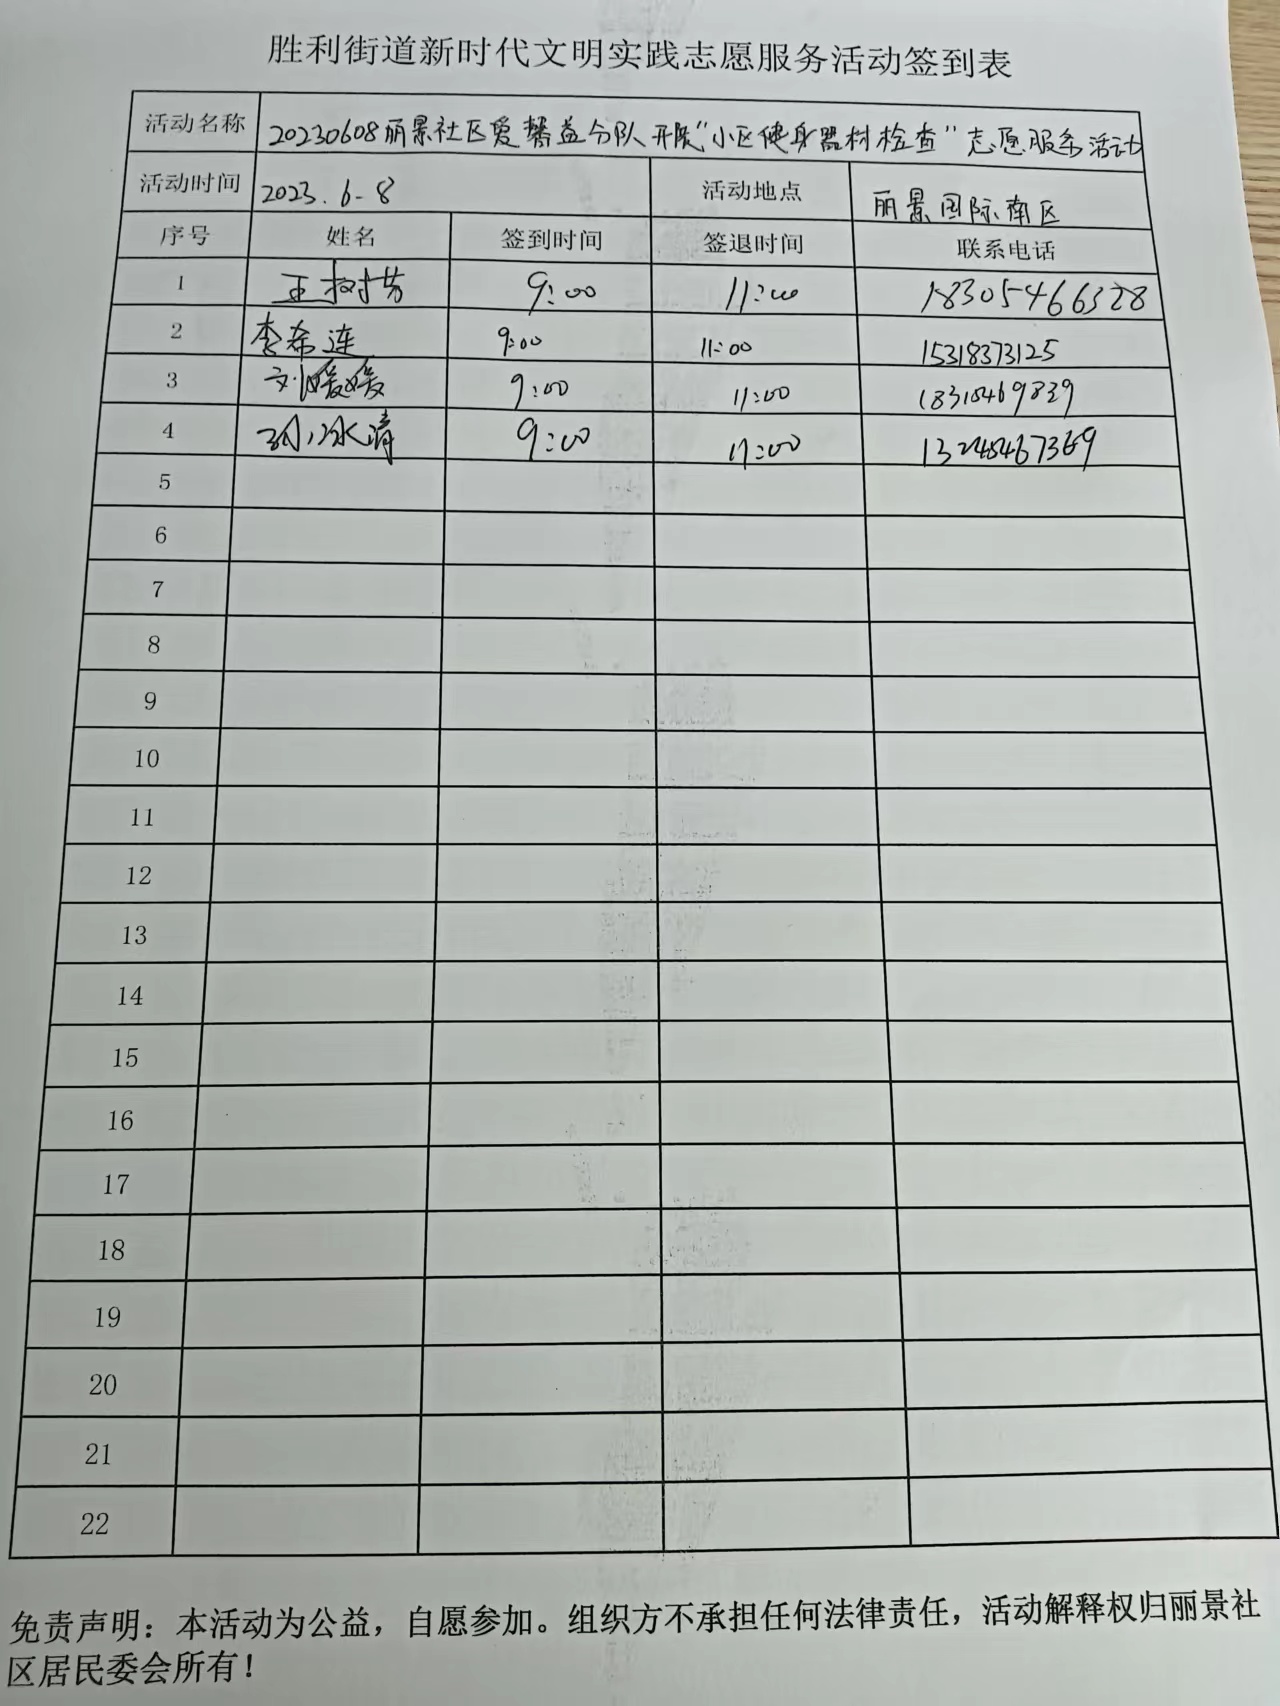 胜利街道新时代文明实践志愿服务活动签到表
活动名称 20230608丽景社区爱馨益分队开展"小区健身器材检查"志愿服务活动
活动时间 2023.6-8 活动地点 丽景国际南区
序号 姓名 签到时间 签退时间 联系电话
1 王树芳 9:00 11:00 18305466328
2 李希连 9:00 11:00 15318373125
3 刘媛媛 9:00 11:00
4 孙冰清 9:00 11:00
5
6
7
8
9
10
11
12
13
14
15
16
17
18
19
20
21
22
免责声明：本活动为公益，自愿参加。组织方不承担任何法律责任，活动解释权归丽景社
区居民委会所有！